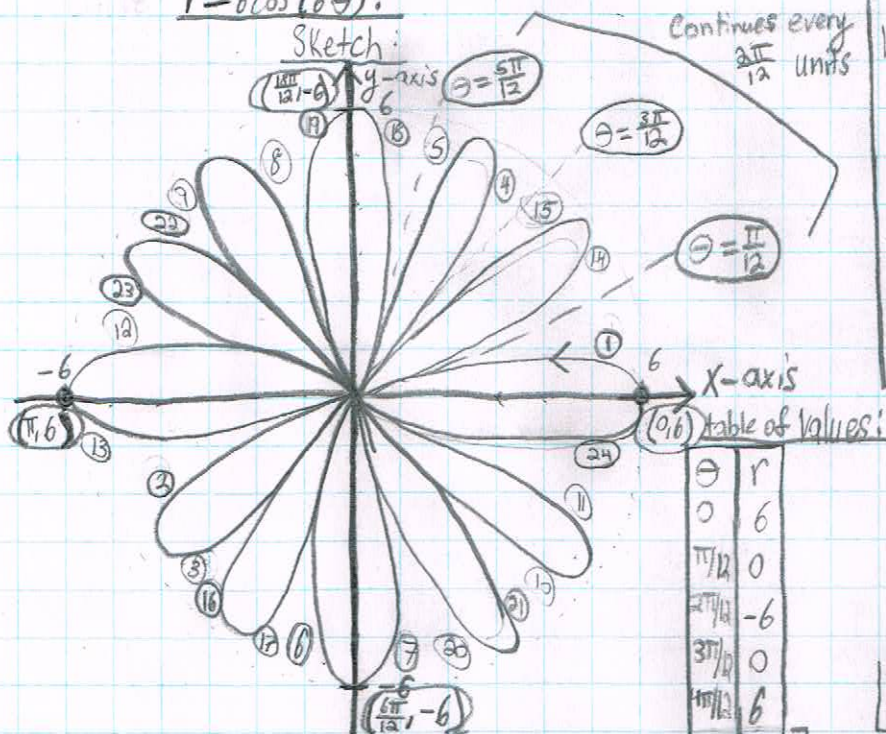 r=6cos(6θ):
Sketch:
Continues every
2π/12 units
(18π/12, -6)
y-axis
6
θ = 5π/12
θ = 3π/12
θ = π/12
19
18
5
4
15
14
8
9
22
23
12
1
6
-6
X-axis
(π, 6)
(0, 6)
13
24
2
3
16
17
6
7
20
21
10
11
-6
(6π/12, -6)
table of values:
θ r
0 6
π/12 0
2π/12 -6
3π/12 0
4π/12 6